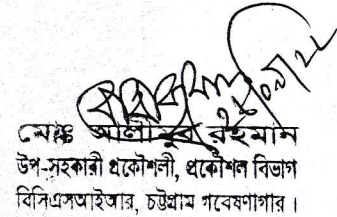 মোঃ আলীমুর রহমান
উপ-সহকারী প্রকৌশলী, প্রকৌশল বিভাগ
বিসিএসআইআর, চট্টগ্রাম গবেষণাগার।